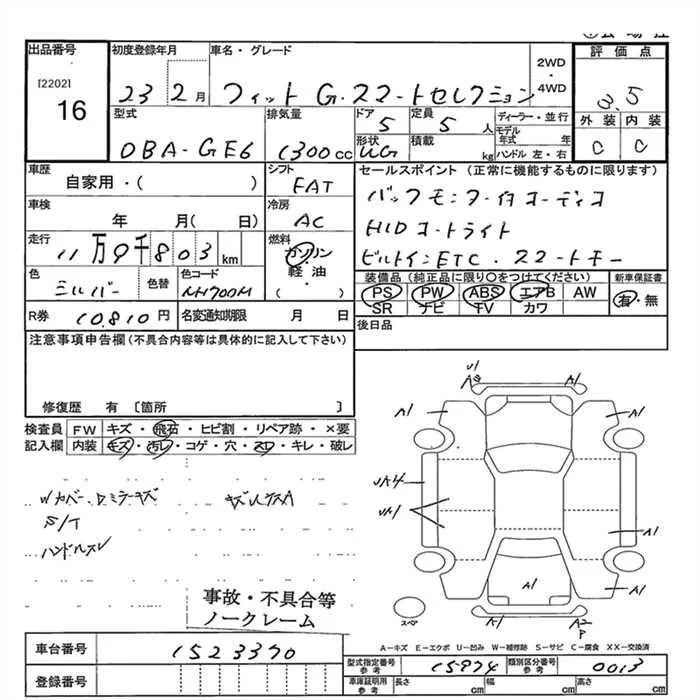 出品番号 初度登録年月 車名・グレード 2WD・4WD 評価点
[2202]
16 23 2月 フィット G・スマートセレクション 3.5
型式 排気量 ドア 定員 ディーラー・並行 外装 内装
DBA-GE6 1300cc 5 5人 モデル年式 年 C C
形状 積載 ハンドル 左・右
UG kg
車歴 シフト セールスポイント (正常に機能するものに限ります)
自家用・( ) FAT バックモニター付オーディオ
車検 冷房 HIDオートライト
年 月( 日) AC ビルトインETC・スマートキー
走行 燃料 装備品 (純正品に限り○をつけてください) 新車保証書
11万9千803km ガソリン PS PW ABS エアB AW 有・無
色 色替 色コード 軽・油 SR ナビ TV カワ
シルバー NH700M ( )
R券 10,810円 名変通知期限 月 日 後日品
注意事項申告欄(不具合内容等は具体的に記入して下さい)
修復歴 有 〔箇所 〕
検査員 FW キズ・飛石・ヒビ割・リペア跡・×要
記入欄 内装 キズ・汚レ・コゲ・穴・スレ・キレ・破レ
Wカバー、ロミラーキズ
S/T
ハンドルスレ
U1
A2 A1
A1 A1
UA4
UA1 A1
A1
スペア
A1 A2
P
事故・不具合等
ノークレーム
A-キズ E-エクボ U-凹み W-補修跡 S-サビ C-腐食 XX-交換済
車台番号 1523370
型式指定番号 参考 15974 類別区分番号 参考 0013
登録番号 車庫証明用 参考 長さ cm 幅 cm 高さ cm